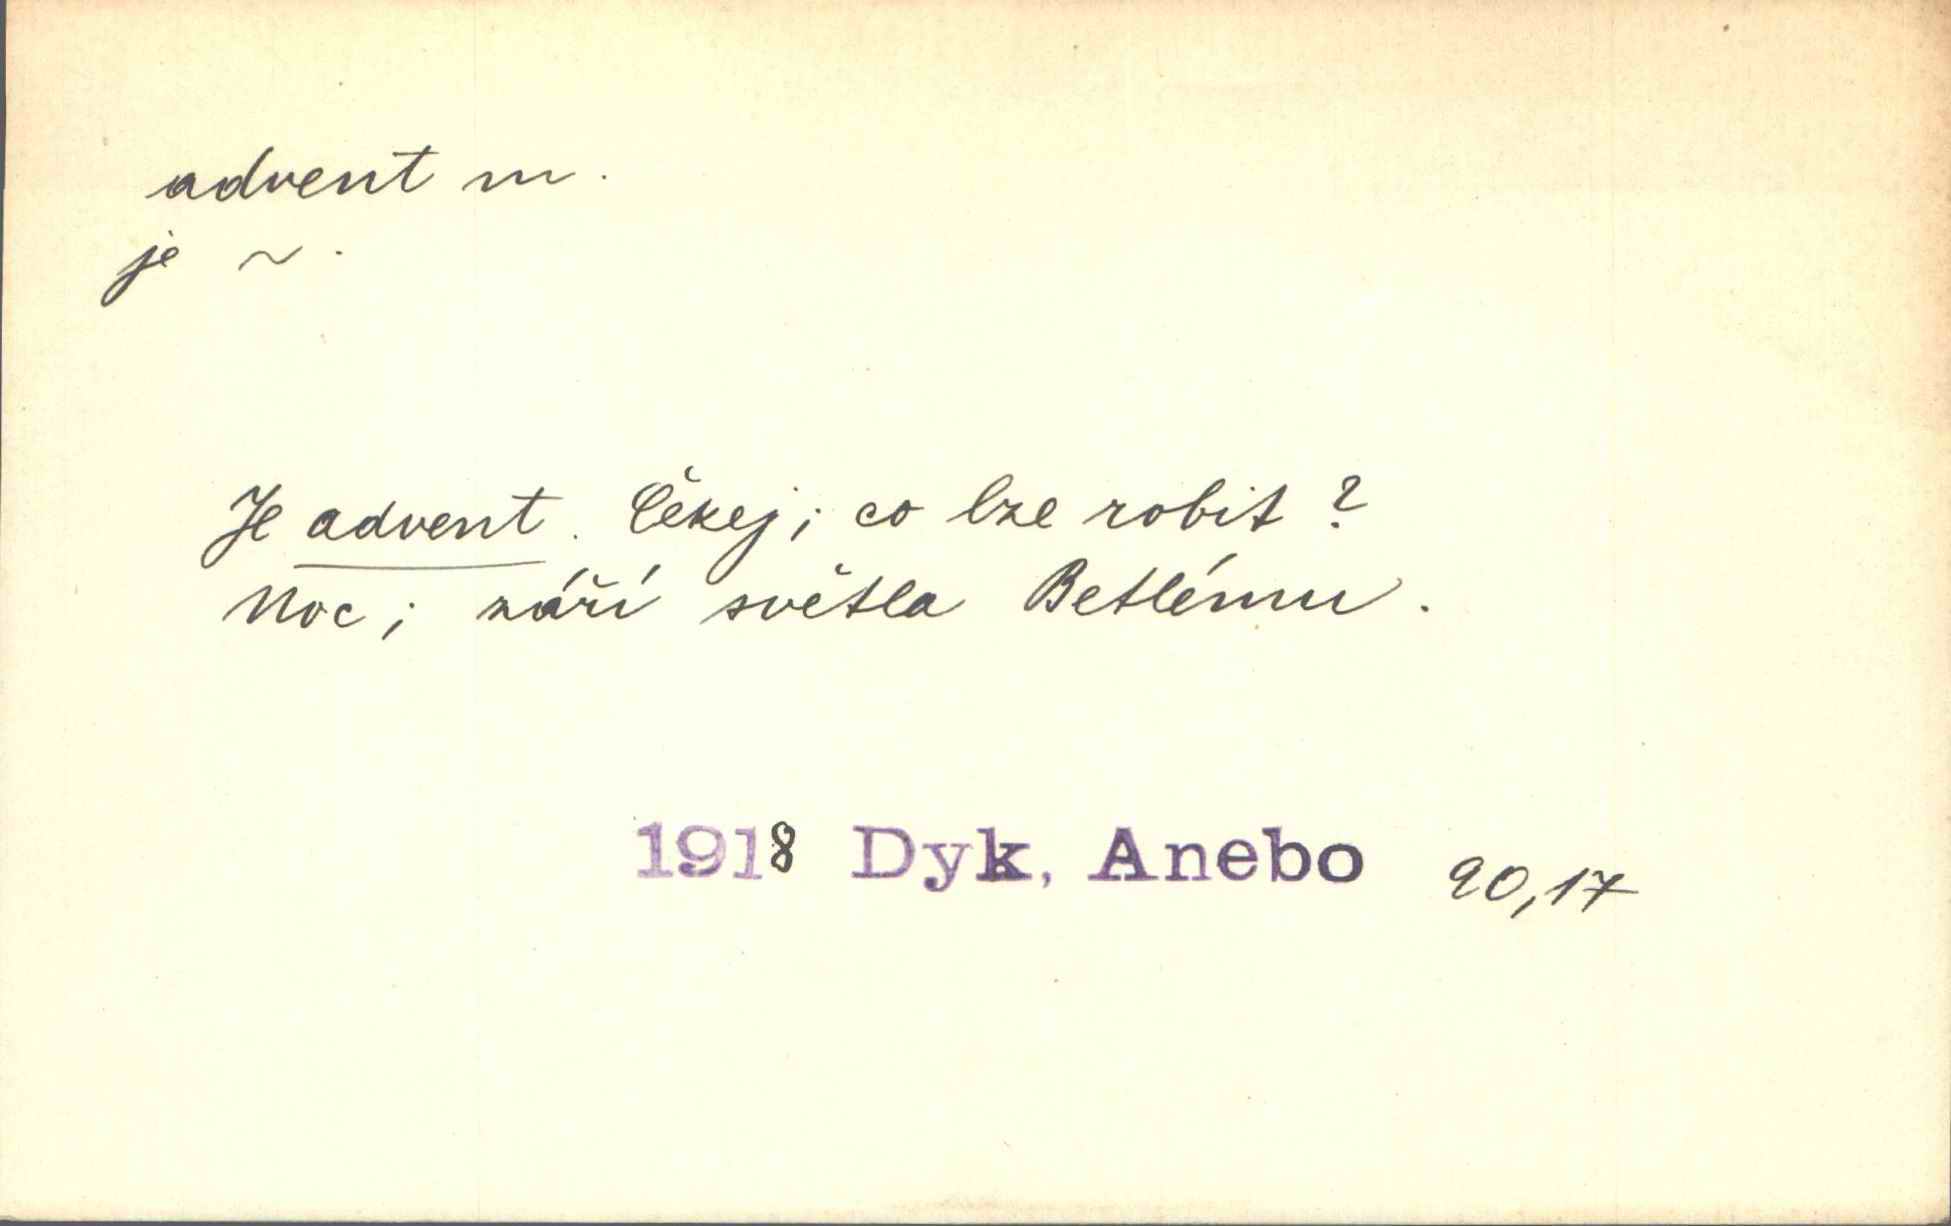 advent m.
je ~.
Je advent. Čekej; co lze robit?
Noc; září světla Betlému.
1918 Dyk, Anebo 90,17